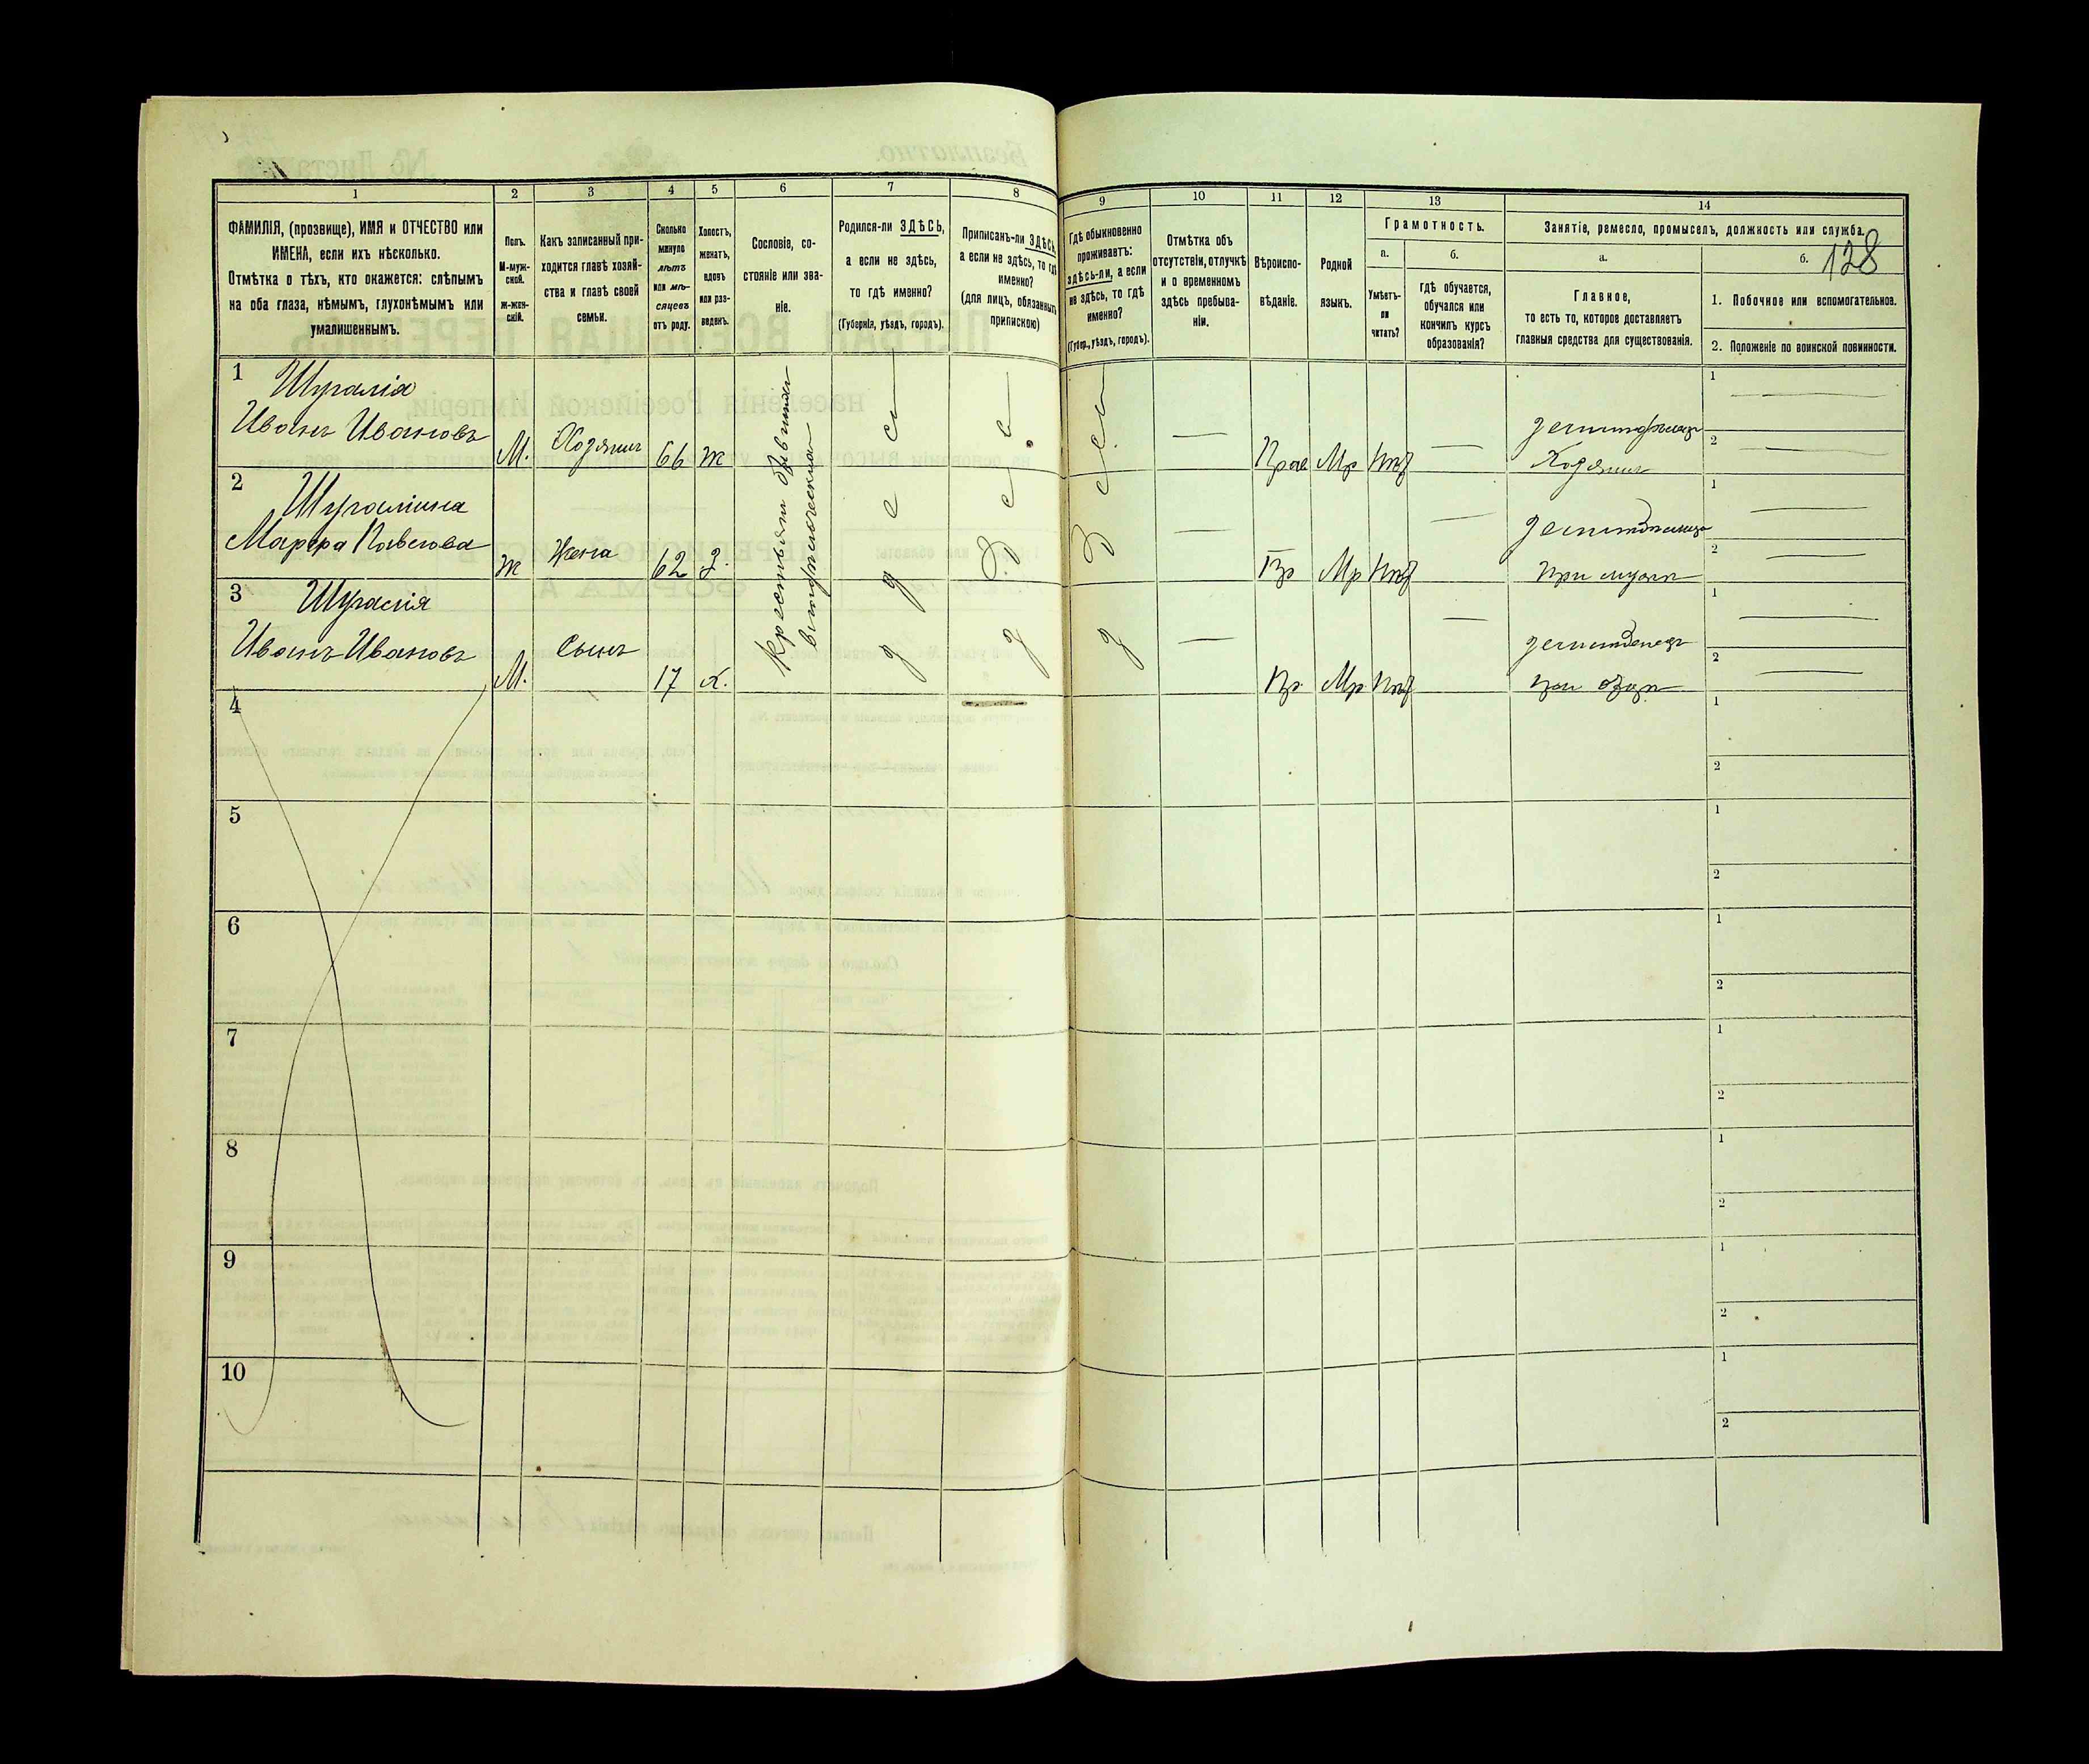 128
1 2 3 4 5 6 7 8 9 10 11 12 13 14
ФАМИЛІЯ, (прозвище), ИМЯ и ОТЧЕСТВО или
ИМЕНА, если ихъ нѣсколько.
Отмѣтка о тѣхъ, кто окажется: слѣпымъ
на оба глаза, нѣмымъ, глухонѣмымъ или
умалишеннымъ.
Полъ.
М-муж-
ской.
Ж-жен-
скій.
Какъ записанный при-
ходится главѣ хозяй-
ства и главѣ своей
семьи.
Сколько
минуло
лѣтъ
или мѣ-
сяцевъ
отъ роду.
Холостъ,
женатъ,
вдовъ
или раз-
веденъ.
Сословіе, со-
стояніе или зва-
ніе.
Родился-ли ЗДѢСЬ,
а если не здѣсь,
то гдѣ именно?
(Губернія, уѣздъ, городъ).
Приписанъ-ли ЗДѢСЬ,
а если не здѣсь, то гдѣ
именно?
(для лицъ, обязанныхъ
припискою)
Гдѣ обыкновенно
проживаетъ:
здѣсь-ли, а если
не здѣсь, то гдѣ
именно?
(Губер., уѣздъ, городъ).
Отмѣтка объ
отсутствіи, отлучкѣ
и о временномъ
здѣсь пребыва-
ніи.
Вѣроиспо-
вѣданіе.
Родной
языкъ.
Грамотность.
а.
Умѣетъ-
ли
читать?
б.
гдѣ обучается,
обучался или
кончилъ курсъ
образованія?
Занятіе, ремесло, промыселъ, должность или служба.
а.
Главное,
то есть то, которое доставляетъ
главныя средства для существованія.
б.
1. Побочное или вспомогательное.
2. Положеніе по воинской повинности.
1 Шугалія
Иванъ Ивановъ М. Хозяинъ 66 ж Прав Мр Нѣт
Хозяинъ
2
Марфа Павлова ж Жена 62 З. Пр Мр Нѣт
при мужѣ
3 Шугалія
Иванъ Ивановъ М. Сынъ 17 х. Пр Мр Нѣт
при отцѣ
4
5
6
7
8
9
10